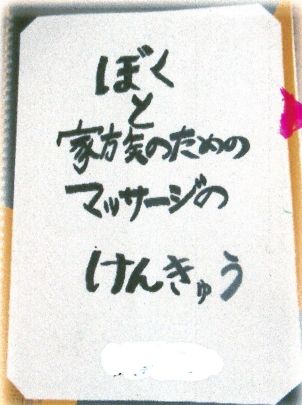 ぼく
と
家族のための
マッサージの
けんきゅう